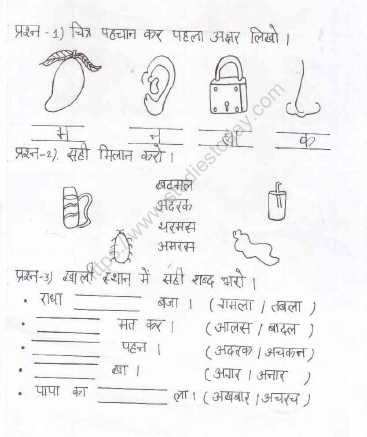 प्रश्न - 1) चित्र पहचान कर पहला अक्षर लिखो ।
म न ल क
प्रश्न-2). सही मिलान करो ।
खटमल
अदरक
थरमस
अमरस
https://www.studiestoday.com
प्रश्न-3) खाली स्थान में सही शब्द भरो ।
• राधा ________ बजा । ( गमला / तबला )
• ________ मत कर । ( आलस / बादल )
• ________ पहन । ( अदरक / अचकन )
• ________ खा । ( अगर / अनार )
• पापा का ________ ला । ( अखबार / अचरच )